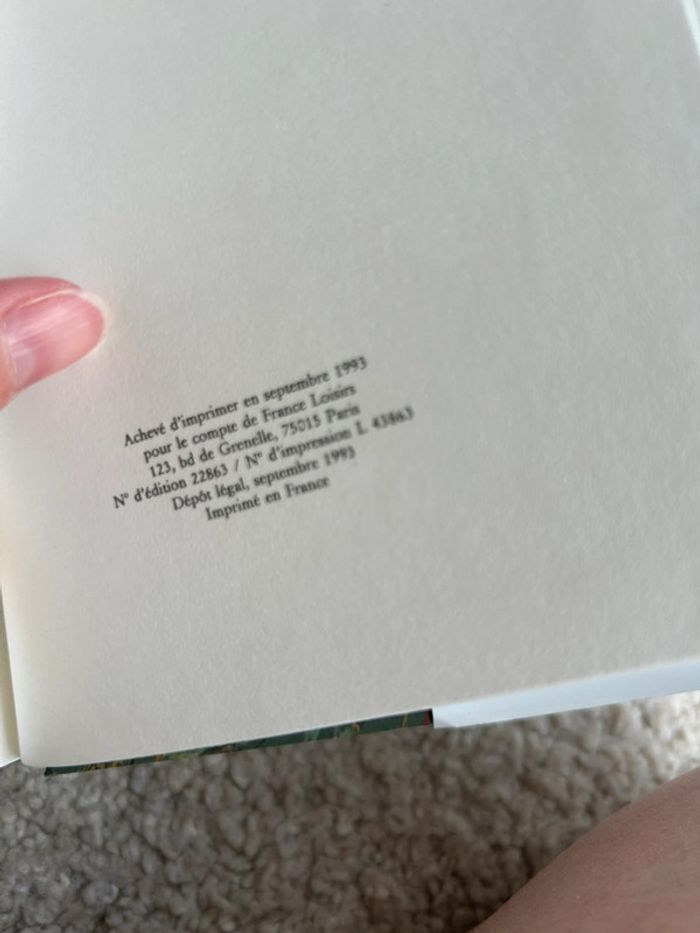 Achevé d'imprimer en septembre 1993
pour le compte de France Loisirs
123, bd de Grenelle, 75015 Paris
N° d'édition 22863 / N° d'impression L 43863
Dépôt légal, septembre 1993
Imprimé en France